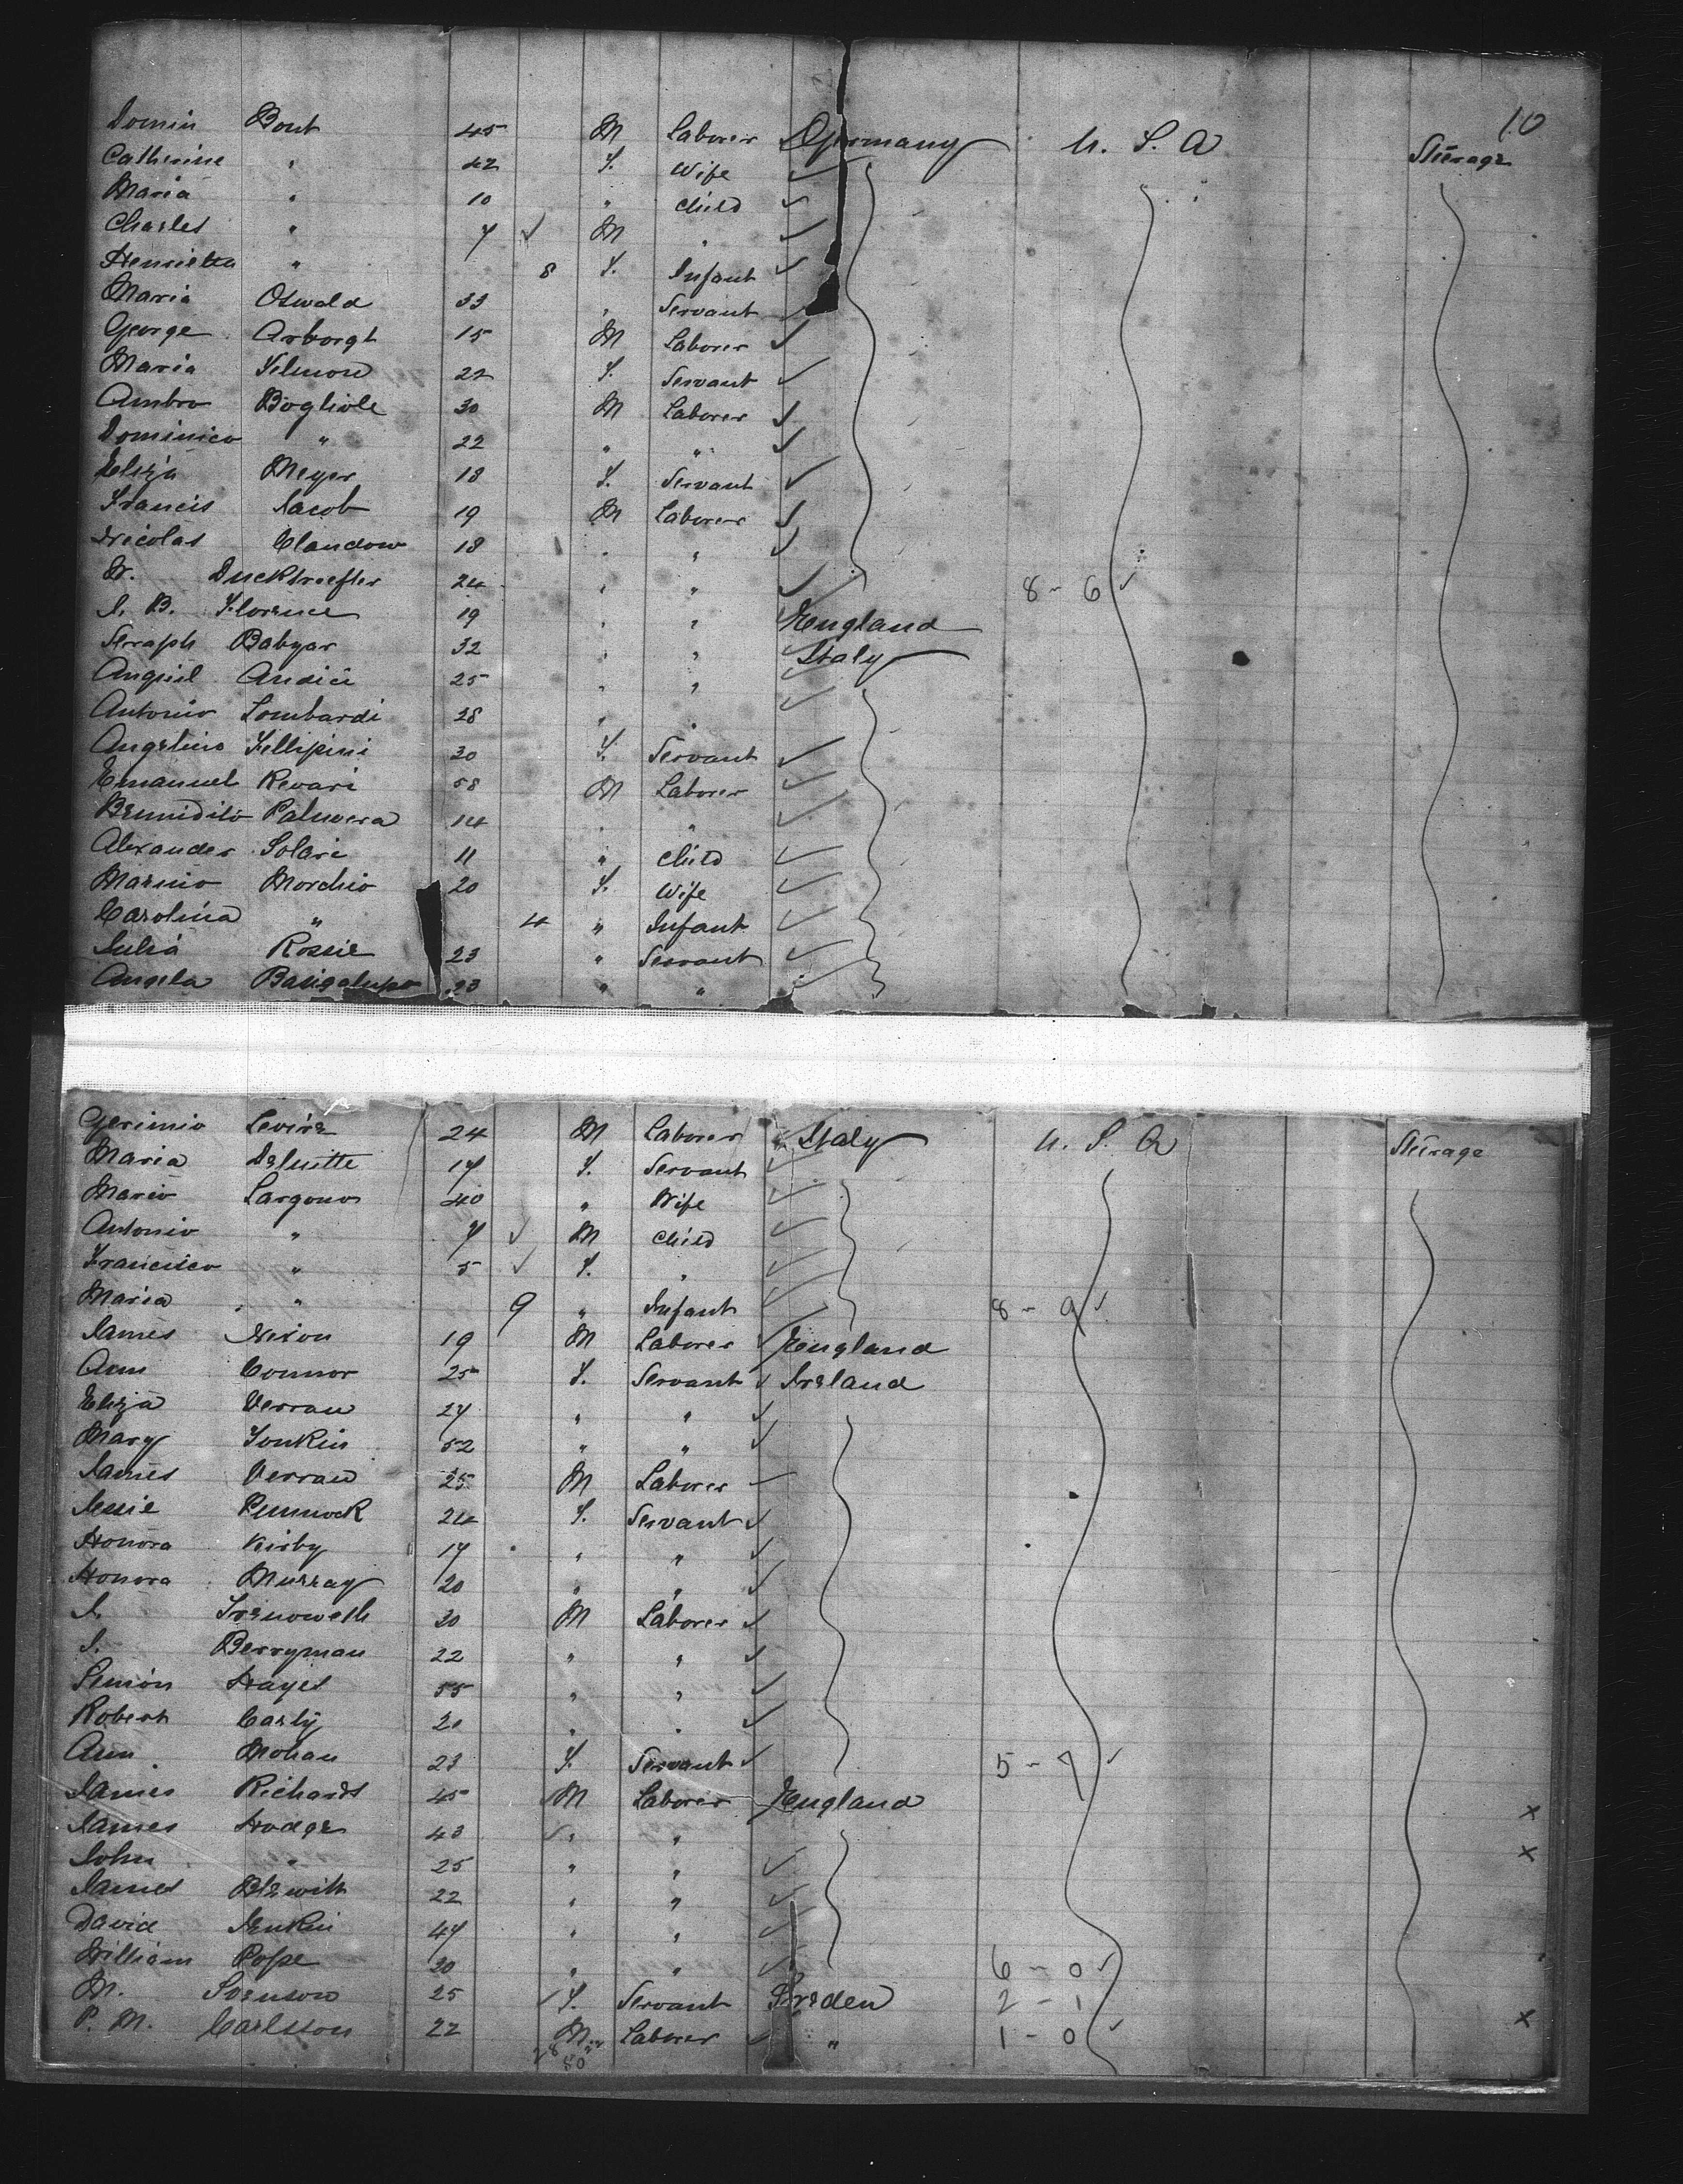 10
Domin Bout 45 M Laborer Germany U. S. A Steerage
Catherine " 42 F. Wife
Maria " 10 " Child
Charles " 7 M "
Henrietta " 8 F. Infant
Maria Oswald 33 " Servant
George Arborgt 15 M Laborer
Maria 22 F. Servant
Ambro Bogliole 30 M Laborer
Dominico " 22 " "
Eliza Meyer 18 F. Servant
Francis Jacob 19 M Laborer
Nicolas Clandow 18 " "
24 " " 8 - 6
J. B. Florence 19 " " England
Seraph Babyar 32 " " Italy
Andici 25 " "
Antonio Lombardi 28 " "
Angelino Fellipini 30 F. Servant
Emanuel Revari 58 M Laborer
Palmera 14 " "
Alexander Solari 11 " Child
Morchio 20 F. Wife
Carolina " 4 " Infant
Julia Rossie 23 " Servant
Angela Basigalupo 23 " "
Gerimio Levire 24 M Laborer Italy U. S. A Steerage
Maria 17 F. Servant
Mario Largono 40 " Wife
Antonio " 7 M Child
Francisco " 5 F. "
Maria " 9 " Infant 8 - 9
James Nixon 19 M Laborer England
Ann Connor 25 F. Servant Ireland
Eliza Verran 27 " "
Mary Tonkin 52 " "
James Verran 25 M Laborer
Jessie Pennock 24 F. Servant
Honora Kirby 17 " "
Honora Murray 20 " "
J. Trenoweth 30 M Laborer
J. Berryman 22 " "
Simon Hayes 55 " "
Robert Carly 21 " "
Ann Mohan 23 F. Servant 5 - 7
James Richards 45 M Laborer England x
James Hodge 43 " " x
John " 25 " "
James Blewitt 22 " "
David Jenkin 47 " "
William Pope 30 " " 6 - 0
M. Svenson 25 F. Servant Sweden 2 - 1
P. M. Carlsson 22 M Laborer " 1 - 0 x